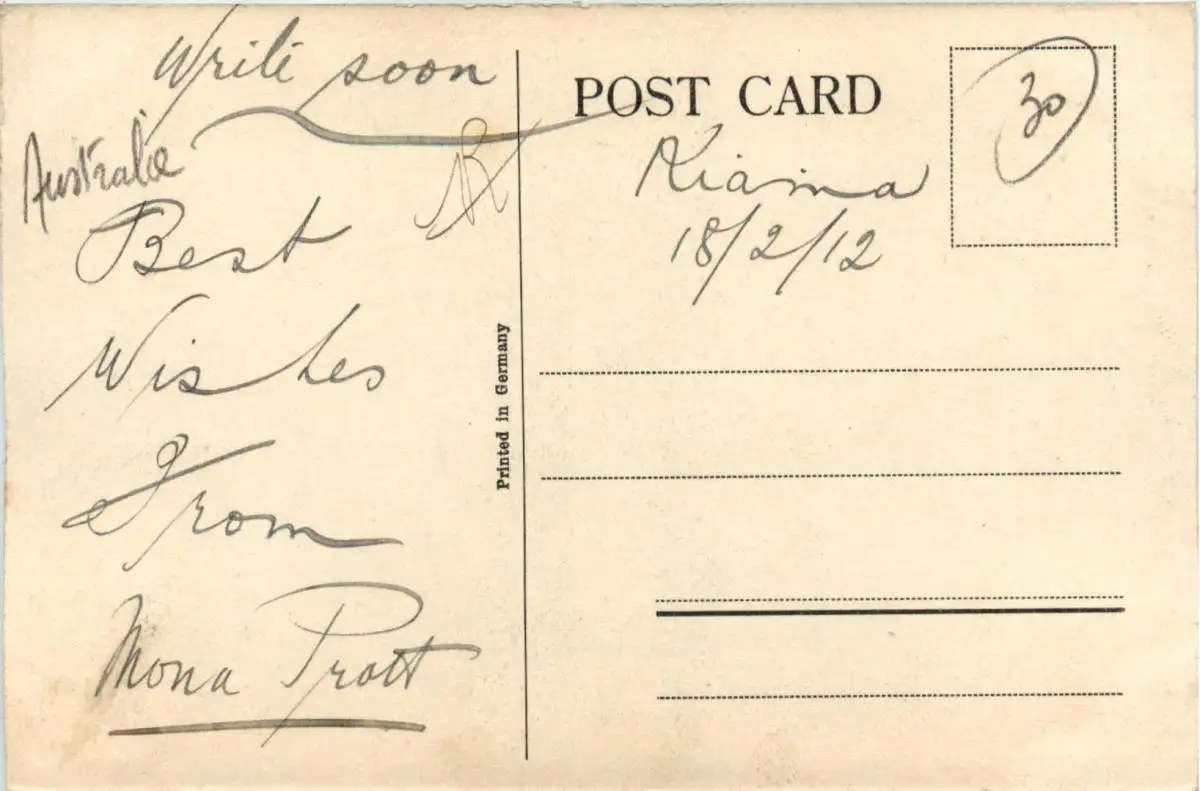 Write soon
Australie
Best
Wishes
From
Mona Pratt
Printed in Germany
POST CARD
Kiama
18/2/12
30